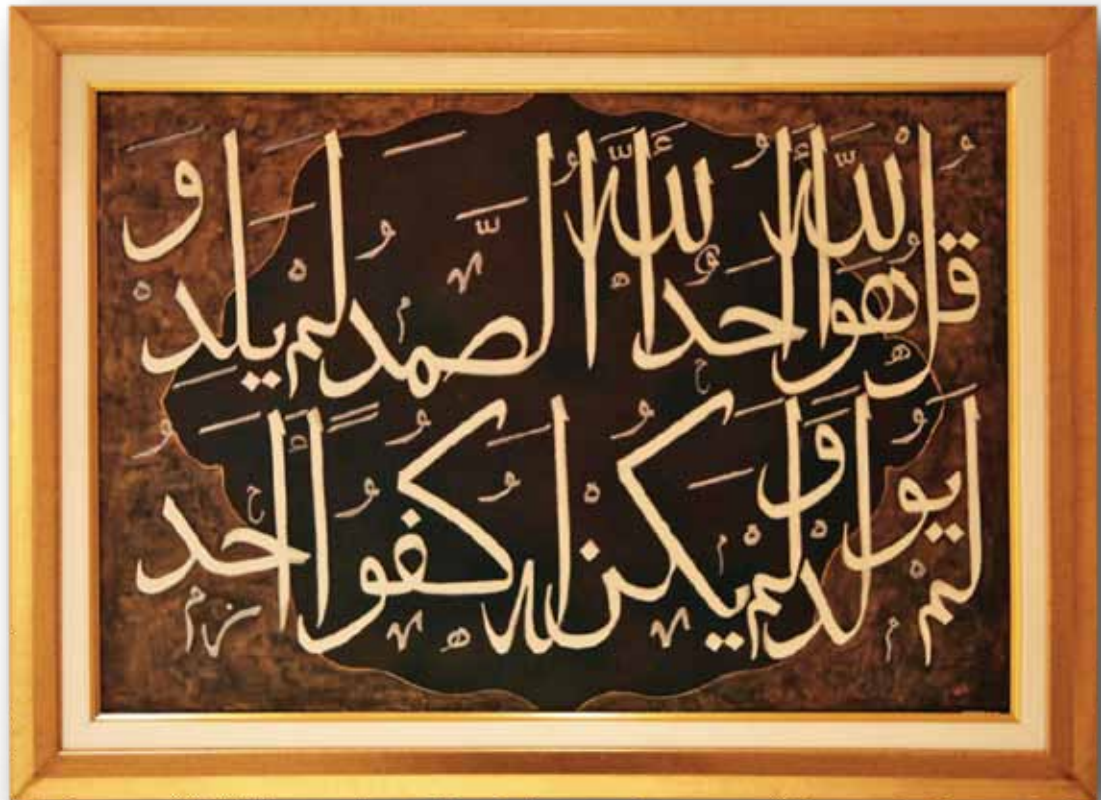 قُلْ هُوَ اللّٰهُ أَحَدٌ اَللّٰهُ الصَّمَدُ لَمْ يَلِدْ وَ
لَمْ يُولَدْ وَلَمْ يَكُنْ لَهُ كُفُوًا أَحَدٌ